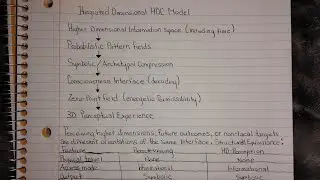 Integrated Dimensional HDC Model
Higher Dimensional Information Space (including time)
Probabilistic Pattern Fields
Symbolic / Archetypal Compression
Consciousness Interface (decoding)
Zero-Point Field (energetic
3D Perceptual Experience
Perceiving higher dimensions, future outcomes, or nonlocal targets
are different orientations of the same interface. Structural Equivalence:
Feature Remote Viewing HD Perception
Physical travel None None
Access mode Informational Informational
Output Symbolic Symbolic